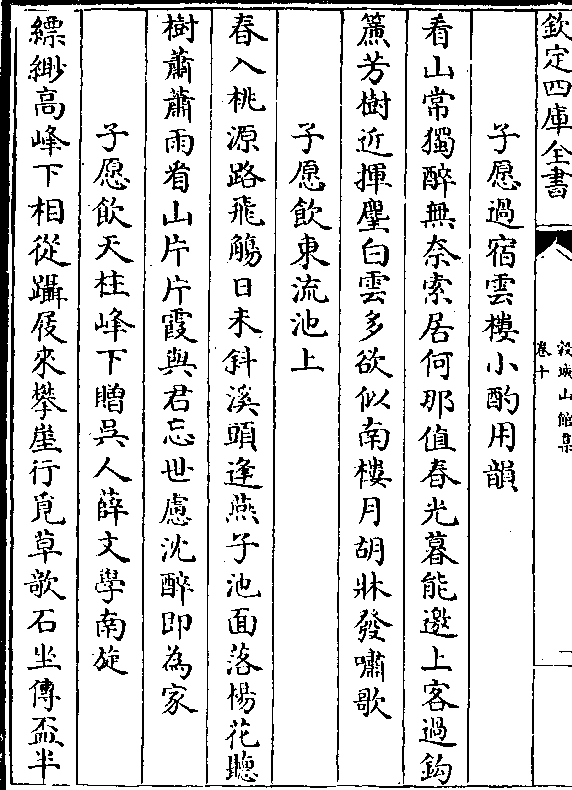 欽定四庫全書
穀城山館集
卷十
二
子愿過宿雲樓小酌用韻
看山常獨醉無奈索居何那值春光暮能邀上客過鈎
簾芳樹近揮麈白雲多欲似南樓月胡牀發嘯歌
子愿飲東流池上
春入桃源路飛觴日未斜溪頭逢燕子池面落楊花聽
樹蕭蕭雨看山片片霞與君忘世慮沈醉即為家
子愿飲天柱峰下贈吳人薛文學南旋
縹緲高峰下相從躡屐來攀崖行覓草歌石坐傳盃半